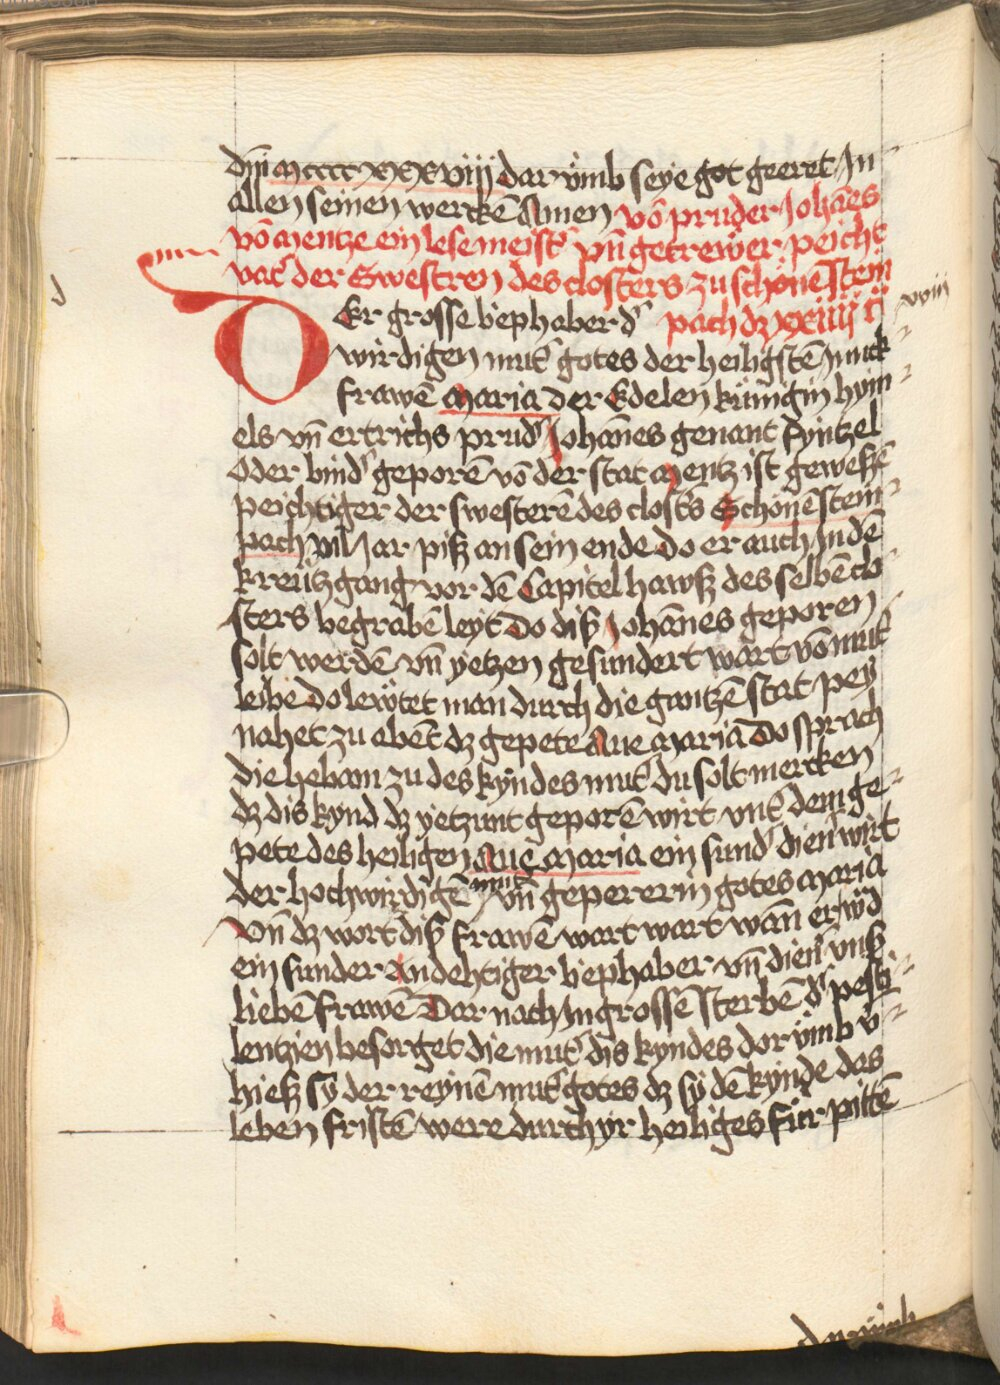 dn̄i mcccc xxxviiij dar vmb seye got geeret Jn
allen seinen werckē Amen vō pruder Johānes
vō mentze ein lesemeist' vn̄ getrewer peicht
vat' der Swestren des closters zu schönēstein
pach dz xxiiij c̄
xviij
DEr grosse liephaber d'
wirdigen mut' gotes der heiligstē Junck
frawē maria der Edelen kunigin hym
els vn̄ ertrichs prud' Johānes genant fyntzel
oder bind' geporē vō der stat mentz ist gewesē
peichtiger der swesterē des clost's Schönēstein
pach vil Jar piß an sein ende do er auch Jn dē
kreutzgang vor dē Capitel hawß des selbē clo
sters begrabē leyt Do diß Johānes geporen
solt werdē vn̄ yetzen gesundert wart vō mut'
leibe do lewtet man durch die gantzē stat pey
nahet zu abēt dz gepete Aue maria Do sprach
die hebam zu des kyndes mut' du solt mercken
dz dis kynd dz yetzunt geporē wirt vnt' dem ge
pete des heiligen Aue maria ein sund' dien' wirt
der hochwirdigē mut' vn̄ gepererin gotes maria
Vn̄ dz wort diß frawē wart wart wān er wd
ein sunder Andehtiger liephaber vn̄ dien' vnß
liebē frawē Dar nach Jn grossē sterbē d' pesti
lentzien besorget die mut' dis kyndes dor vmb v'
hieß sy der reynē mut' gotes dz sy dē kynde das
leben fristē were durch yr heiliges für pittē